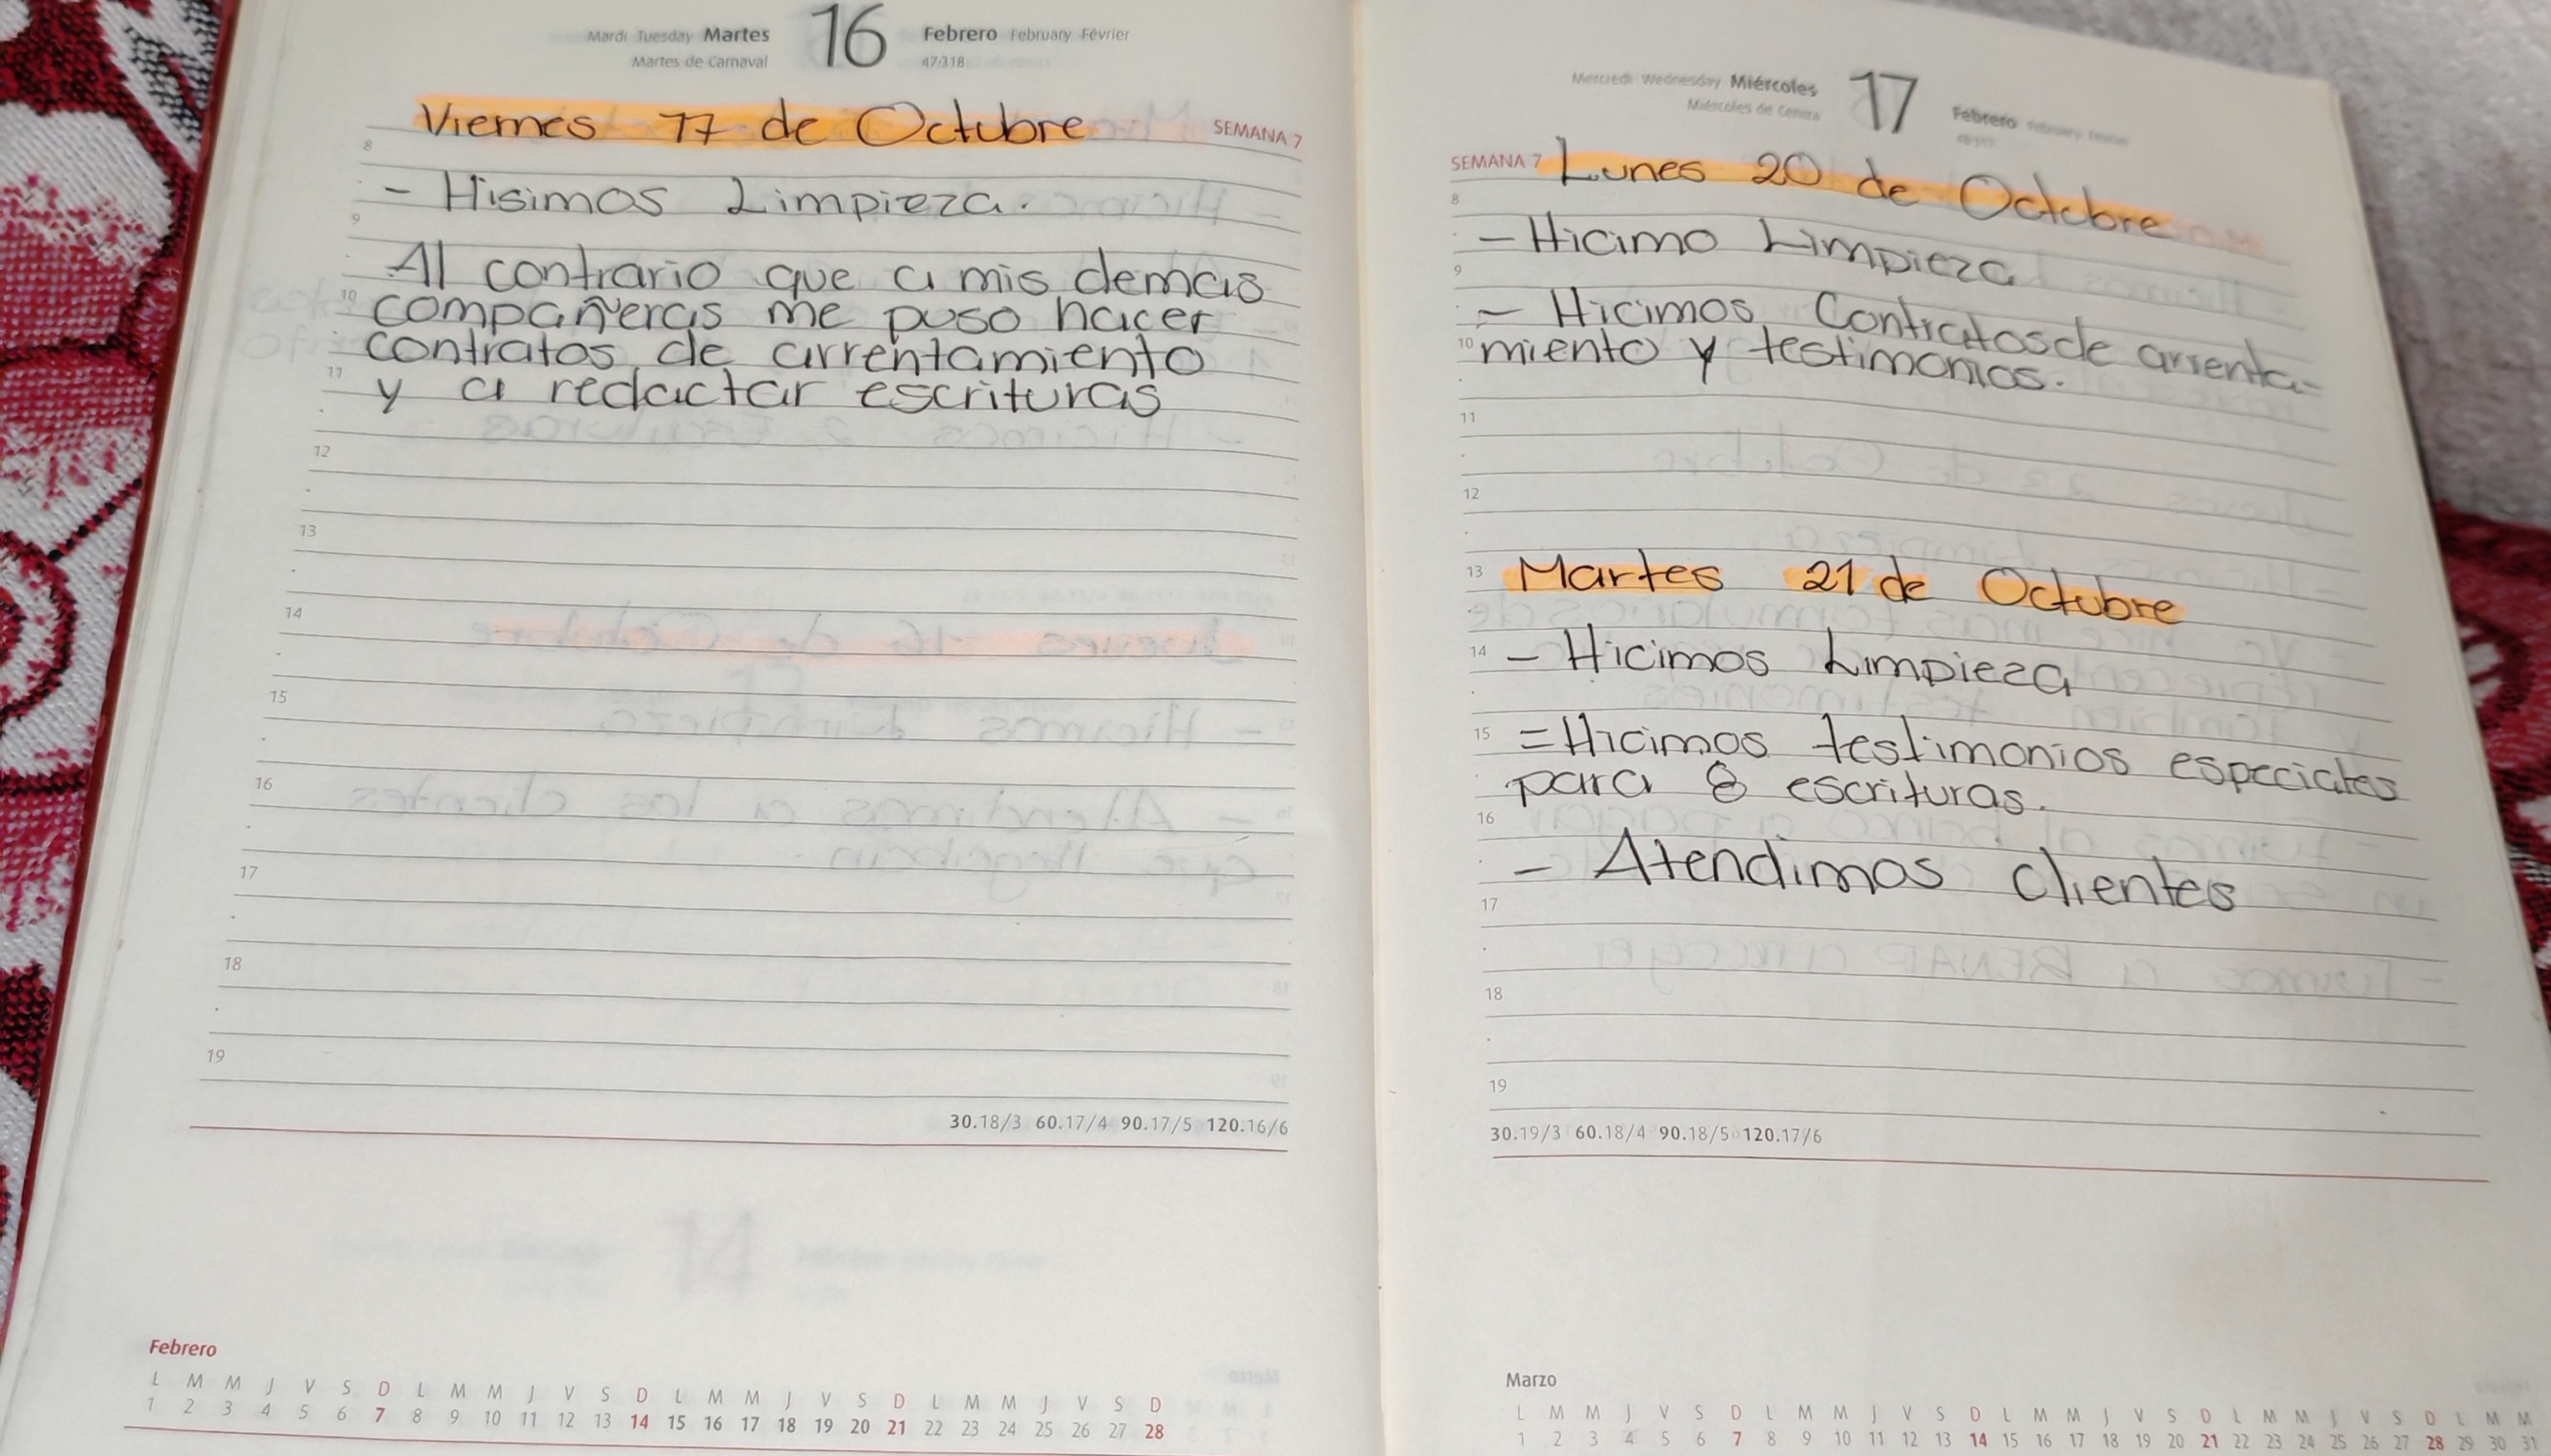 Mardi Tuesday Martes 16 Febrero February Février
Martes de Carnaval 47/318
Viernes 17 de Octubre
SEMANA 7
8
- Hisimos Limpieza.
9
Al contrario que a mis demas
10 compañeras me puso hacer
contratos de arrentamiento
11 y a redactar escrituras
12
13
14
15
16
17
18
19
30.18/3 60.17/4 90.17/5 120.16/6
Febrero
L M M J V S D L M M J V S D L M M J V S D L M M J V S D
1 2 3 4 5 6 7 8 9 10 11 12 13 14 15 16 17 18 19 20 21 22 23 24 25 26 27 28
Mercredi Wednesday Miércoles 17 Febrero February Février
Miércoles de Ceniza
SEMANA 7 Lunes 20 de Octubre
8
- Hicimo Limpieza
9
- Hicimos Contratos de arrenta-
10 miento y testimonios.
11
12
13 Martes 21 de Octubre
14 - Hicimos Limpieza
15 = Hicimos testimonios especiales
para 8 escrituras.
16
- Atendimos clientes
17
18
19
30.19/3 60.18/4 90.18/5 120.17/6
Marzo
L M M J V S D L M M J V S D L M M J V S D L M M J V S D L M M
1 2 3 4 5 6 7 8 9 10 11 12 13 14 15 16 17 18 19 20 21 22 23 24 25 26 27 28 29 30 31